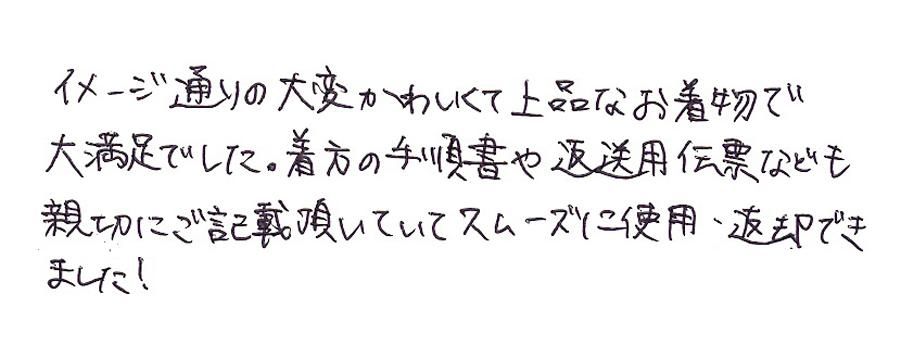 イメージ通りの大変かわいくて上品なお着物で
大満足でした。着方の手順書や返送用伝票なども
親切にご記載頂いていてスムーズに使用・返却でき
ました!